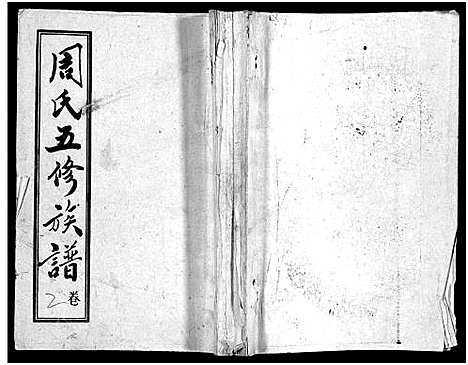 周氏五修族譜
卷